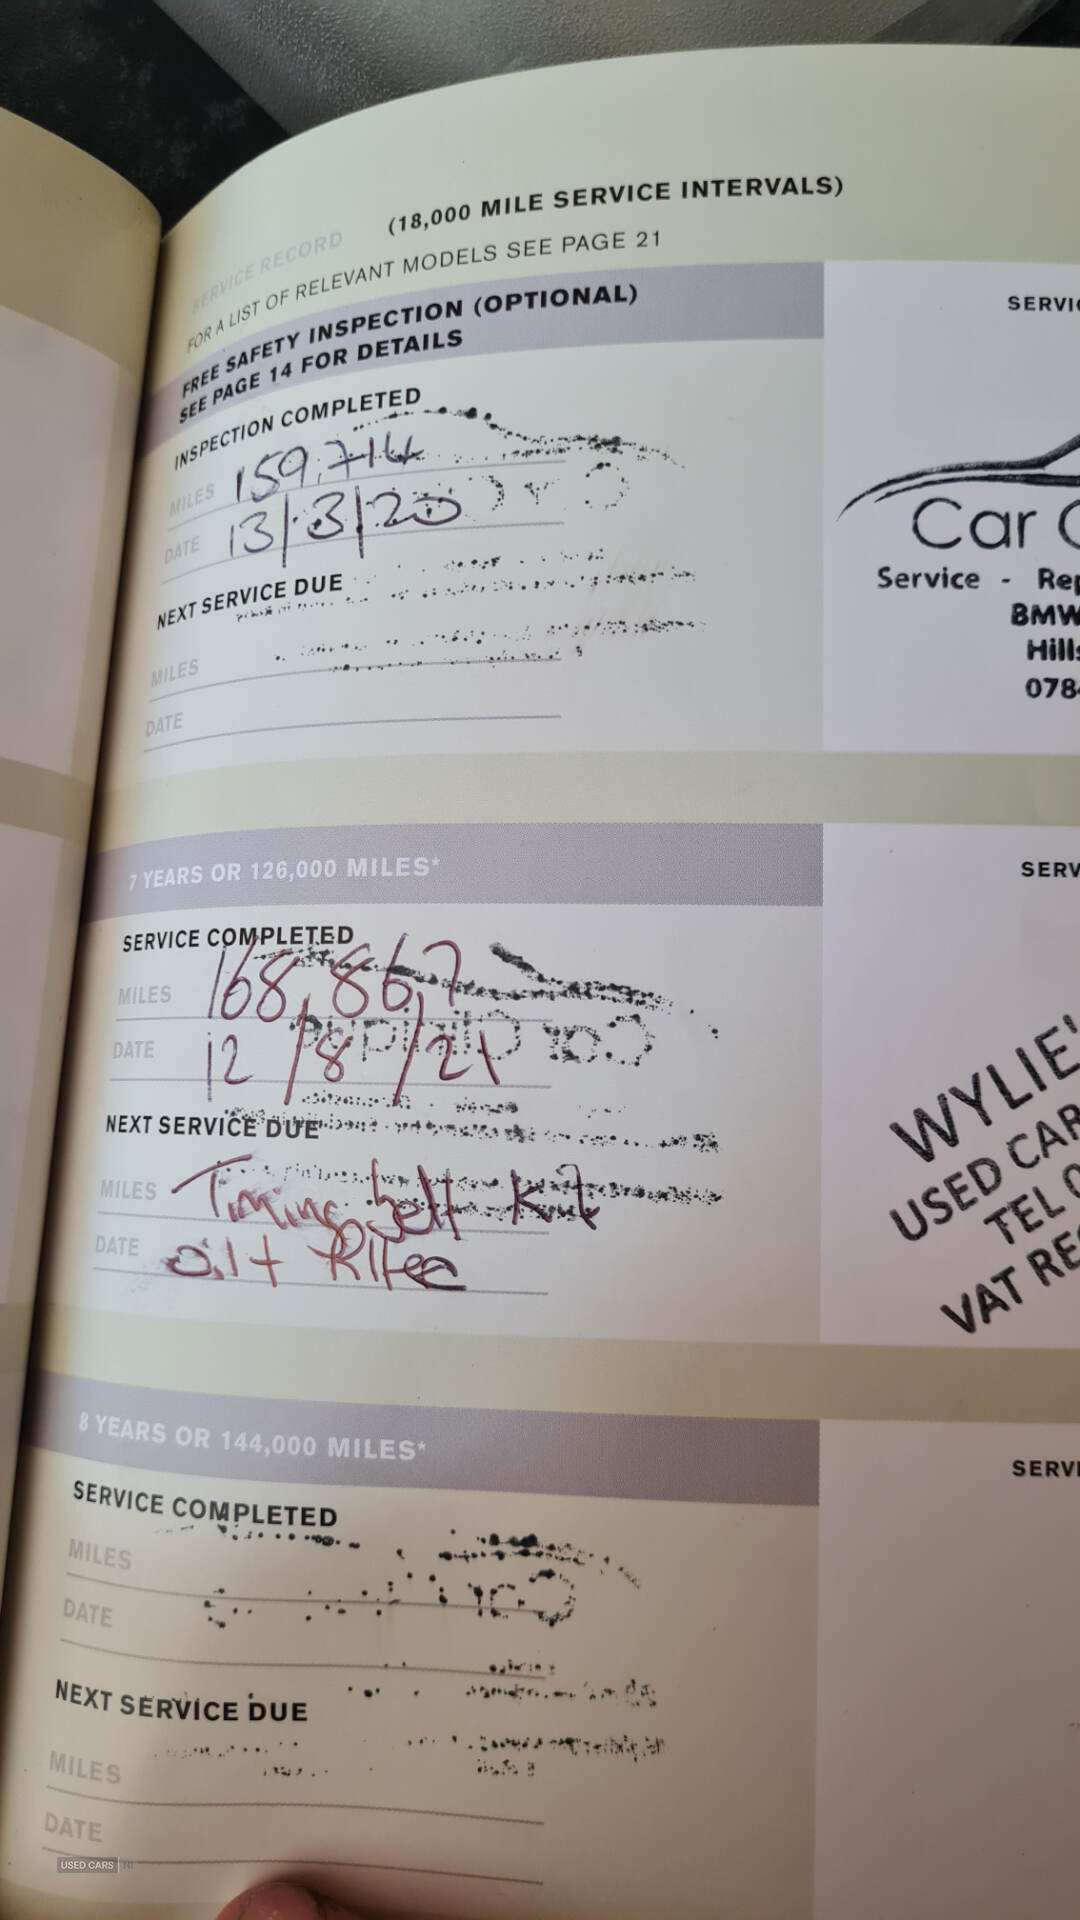 (18,000 MILE SERVICE INTERVALS)
SERVICE RECORD
FOR A LIST OF RELEVANT MODELS SEE PAGE 21
FREE SAFETY INSPECTION (OPTIONAL)
SEE PAGE 14 FOR DETAILS
INSPECTION COMPLETED
MILES 159,714
DATE 13/3/20
NEXT SERVICE DUE
MILES
DATE
SERVIC
Car
Service - Rep
BMW
Hills
078
7 YEARS OR 126,000 MILES*
SERVICE COMPLETED
MILES 168,867
DATE 12/8/21
NEXT SERVICE DUE
MILES Timing belt kit
DATE oil +
SERV
WYLIE'
USED CAR
TEL 0
VAT RE
8 YEARS OR 144,000 MILES*
SERVICE COMPLETED
MILES
DATE
NEXT SERVICE DUE
MILES
DATE
SERVI
USED CARS NI